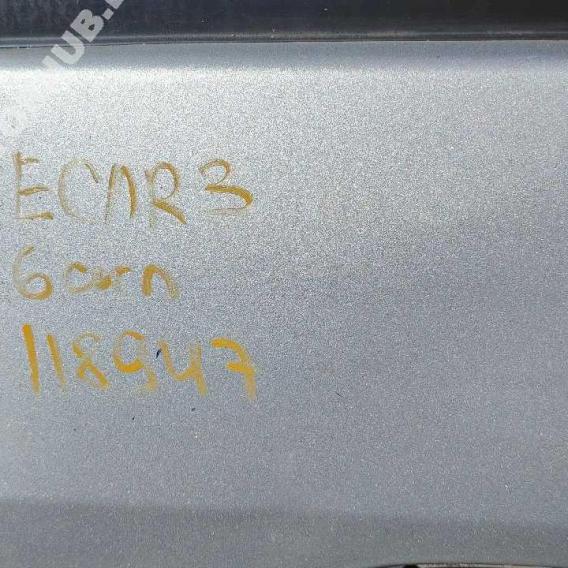 ECAR3
6 corn
118947